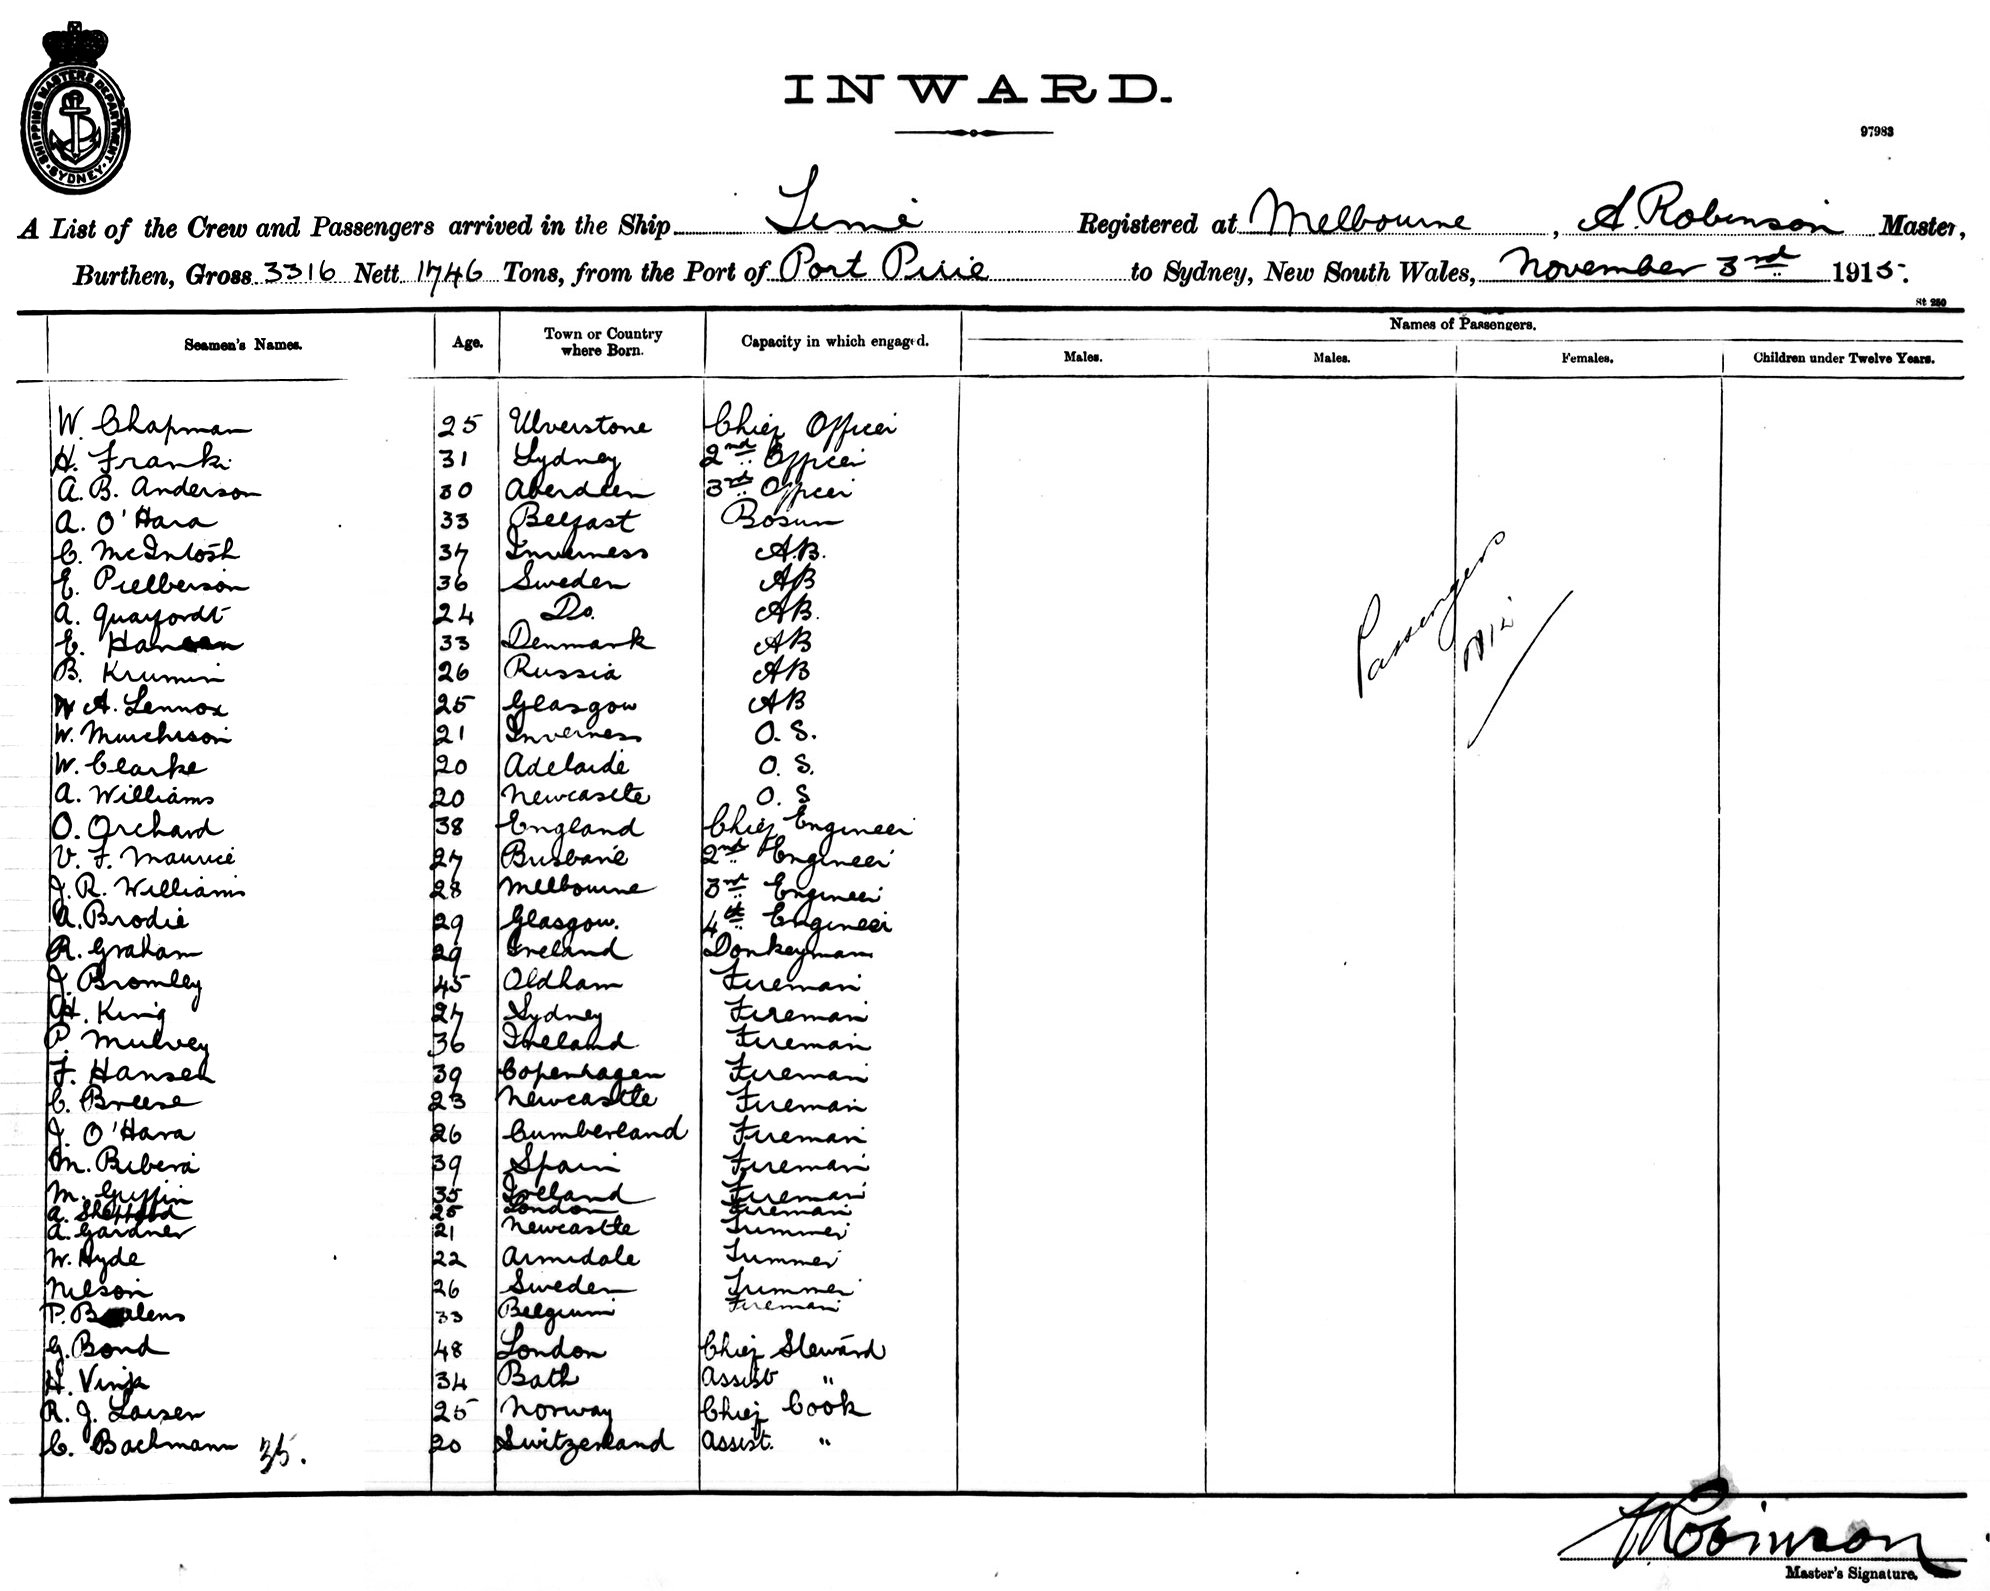 SHIPPING MASTERS DEPARTMENT. SYDNEY
INWARD.
97983
A List of the Crew and Passengers arrived in the Ship Registered at Melbourne, A. Robinson Master,
Burthen, Gross 3316 Nett 1746 Tons, from the Port of Port Pirie to Sydney, New South Wales, November 3rd 1915.
St 250
Seamen's Names. Age. Town or Country where Born. Capacity in which engaged. Names of Passengers.
Males. Males. Females. Children under Twelve Years.
W. Chapman 25 Ulverstone Chief Officer
H. Franki 31 Sydney 2nd Officer
A. B. Anderson 30 Aberdeen 3rd Officer
A. O'Hara 33 Belfast Bosun
C. McIntosh 37 Inverness A.B.
E. 36 Sweden AB
A. Quayfordt 24 Do. AB.
E. Hansen 33 Denmark AB
B. Krumin 26 Russia AB
W A. Lennox 25 Glasgow AB
W. Murchison 21 Inverness O. S.
W. Clarke 20 Adelaide O. S.
A. Williams 20 Newcastle O. S
O. Orchard 38 England Chief Engineer
V. F. Maurice 27 Brisbane 2nd Engineer
J. R. Williams 28 Melbourne 3rd Engineer
A. Brodie 29 Glasgow. 4th Engineer
R. Graham 29 Ireland Donkeyman
J. Bromley 45 Oldham Fireman
H. King 27 Sydney Fireman
P. Mulvey 36 Ireland Fireman
F. Hansen 39 Copenhagen Fireman
C. Breese 23 Newcastle Fireman
J. O'Hara 26 Cumberland Fireman
M. Ribera 39 Spain Fireman
M. Griffin 35 Ireland Fireman
A. Sheppard 25 London Fireman
A. Gardner 21 Newcastle Trimmer
W. Hyde 22 Armidale Trimmer
Nilson 26 Sweden Trimmer
P. 33 Belgium Fireman
G. Bond 48 London Chief Steward
H. 34 Bath Assist "
R. J. Larsen 25 Norway Chief Cook
C. Bachmann 35. 20 Switzerland Assist. "
Passengers
Nil
Robinson
Master's Signature.